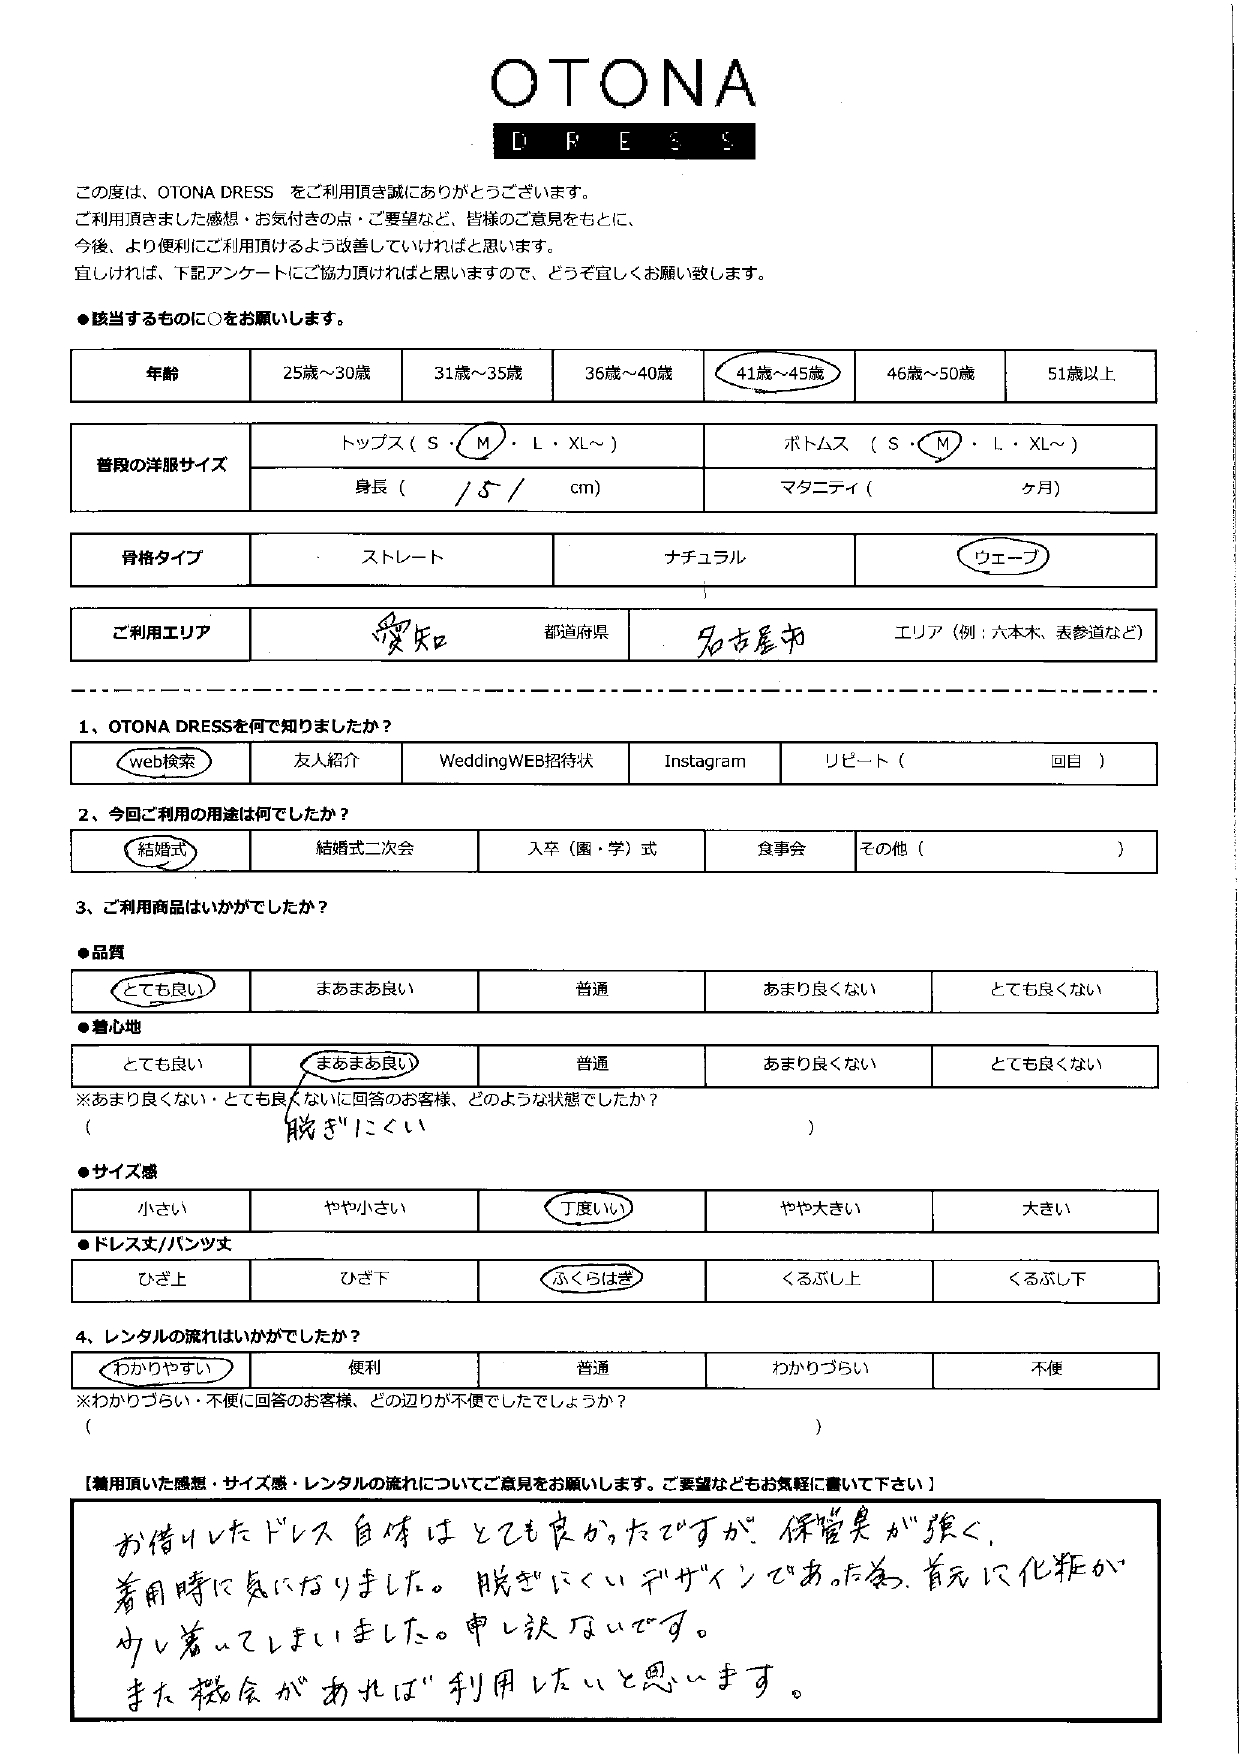 OTONA
DRESS
この度は、OTONA DRESS をご利用頂き誠にありがとうございます。
ご利用頂きました感想・お気付きの点・ご要望など、皆様のご意見をもとに、
今後、より便利にご利用頂けるよう改善していければと思います。
宜しければ、下記アンケートにご協力頂ければと思いますので、どうぞ宜しくお願い致します。
●該当するものに○をお願いします。
年齢 25歳～30歳 31歳～35歳 36歳～40歳 41歳～45歳 46歳～50歳 51歳以上
普段の洋服サイズ トップス ( S ・ M ・ L ・ XL～ ) ボトムス ( S ・ M ・ L ・ XL～ )
身長 ( 151 cm) マタニティ ( ヶ月)
骨格タイプ ストレート ナチュラル ウェーブ
ご利用エリア 愛知 都道府県 名古屋市 エリア（例：六本木、表参道など）
1、OTONA DRESSを何で知りましたか？
web検索 友人紹介 WeddingWEB招待状 Instagram リピート ( 回目 )
2、今回ご利用の用途は何でしたか？
結婚式 結婚式二次会 入卒（園・学）式 食事会 その他 ( )
3、ご利用商品はいかがでしたか？
●品質
とても良い まあまあ良い 普通 あまり良くない とても良くない
●着心地
とても良い まあまあ良い 普通 あまり良くない とても良くない
※あまり良くない・とても良くないに回答のお客様、どのような状態でしたか？
( 脱ぎにくい )
●サイズ感
小さい やや小さい 丁度いい やや大きい 大きい
●ドレス丈/パンツ丈
ひざ上 ひざ下 ふくらはぎ くるぶし上 くるぶし下
4、レンタルの流れはいかがでしたか？
わかりやすい 便利 普通 わかりづらい 不便
※わかりづらい・不便に回答のお客様、どの辺りが不便でしたでしょうか？
( )
【着用頂いた感想・サイズ感・レンタルの流れについてご意見をお願いします。ご要望などもお気軽に書いて下さい】
お借りしたドレス自体はとても良かったですが、保管臭が強く、
着用時に気になりました。脱ぎにくいデザインであった為、首元に化粧が
少し着いてしまいました。申し訳ないです。
また機会があれば利用したいと思います。